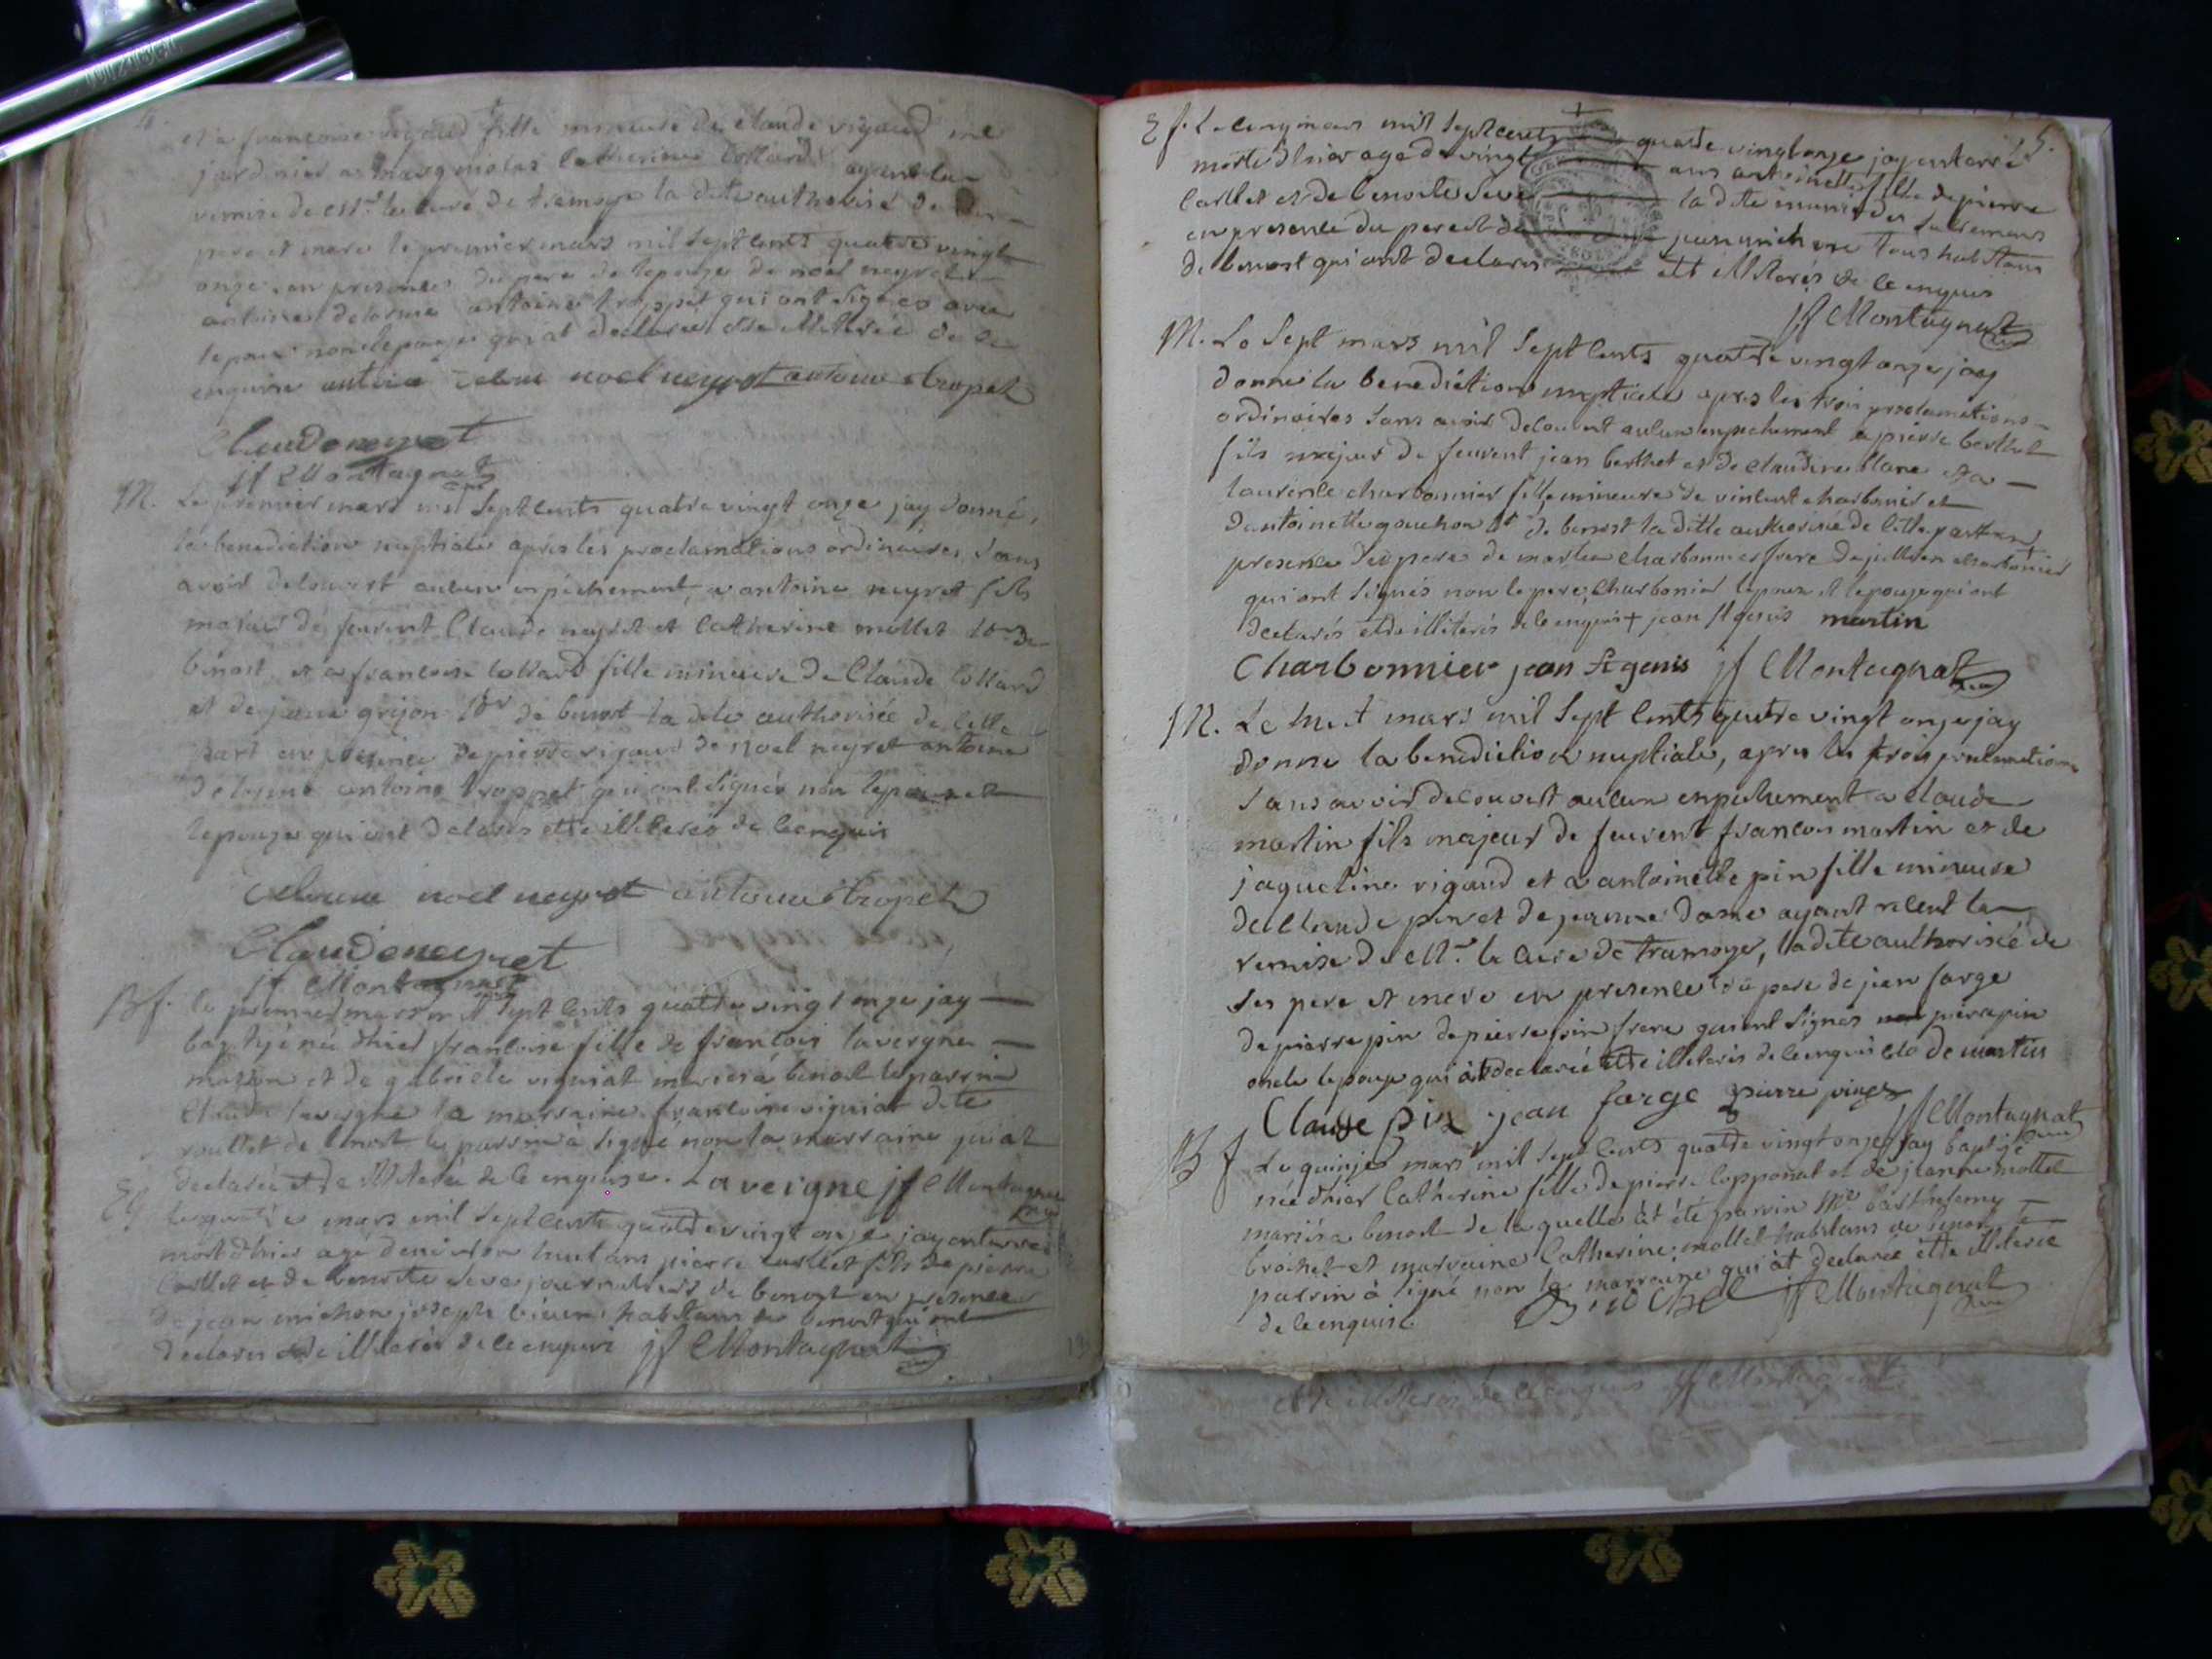 et a francoise rigaud fille mineure de claude rigaud
jardinier catherine collard ayant la
remise de la cure de tramoye la dite authorisé de
pere et mere le premier mars mil sept cents quatre vingt
onze en presence du pere de lepouze de noel neyret
antoine delorme antoine troppet qui ont signes avec
lepoux non lepouze qui at declaree etre illiterée de ce
enquise antoine noel neyret antoine tropet
Claude neyret
jf Montagnat
M. Le premier mars mil sept cents quatre vingt onze jay donné
la benediction nuptiale après les proclamations ordinaires sans
avoir decouvert aucun enpechement, a antoine neyret fils
majeur de feurent Claude neyret et catherine mollet de
benost et a francoise collard fille mineure de Claude Collard
et de jeane grijon de benost la dite authorisée de cette
part en presence de pierre rigaud de noel neyret antoine
delorme antoine troppet qui ont signés non lepoux et
lepouze qui ont declares etre illiteres de ce enquis
noel neyret antoine tropet
Claude neyret
jf Montagnat
Bf. le premier mars mil sept cents quatre vingt onze jay
baptizé née dhier francoise fille de francois lavergne
masson et de gabriele viguiat mariés a benost le parrin
Claude lavergne la marraine francoise viguiat dite
roullet de benost le parrin à signé non la marraine qui at
declarée etre illiterée de ce enquise. Lavergne jf Montagnat
le quatre mars mil sept cents quatre vingt onze jay enterré
mort dhier age denviron huit ans pierre caillet fils de pierre
Caillet et de benoite seve journaliers de benost en presence
de jean michon joseph habitans de benost qui ont
declares etre illiteres de ce enquis jf Montagnat
5.
Ef. Le cinq mars mil sept cents quatre vingt onze jay enterré
morte dhier age de vingt ans antoinette fille de pierre
caillet et de benoite seve la dite munie des sacremens
en presence du pere et de jean michon tous habitans
de benost qui ont declares ett illiteres de ce enquis
jf Montagnat
M. Le Sept mars mil Sept Cents quatre vingt onze jay
donné la benediction nuptiale apres les trois proclamations
ordinaires sans avoir decouvert aucun enpechement a pierre berthet
fils majeur de feurent jean berthet et de claudine blanc et a
charbonnier fille mineure de vincent charbonier et
dantoinette gouchon de benost la ditte authorisé de cette part en
presence du pere de martin charbonnier frere de charbonier
qui ont signés non le pere, Charbonier lepoux et lepouze qui ont
declarés etre illiterés de ce enquis + jean st genis martin
Charbonnier jean st genis jf Montagnat
M. Le huit mars mil sept cents quatre vingt onze jay
donne la benediction nuptiale, apres les trois proclamations
sans avoir decouvert aucun enpechement a claude
martin fils majeur de feurent francois martin et de
jaqueline rigaud et a antoinette pin fille mineure
de Claude pin et de jeanne dame ayant receut la
remise de Mr. le cure de tramoye, la dite authorisée de
ses pere et mere en presence du pere de jean farge
de pierre pin de pierre pin frere qui ont signés pierre pin
oncle lepouze qui àt declarée etre illiteres de ce enquis Clo de martin
Claude pin jean farge pierre pin jf Montagnat
Bf Le quinze mars mil sept cents quatre vingt onze jay baptizé
née dhier Catherine fille de pierre copponat et de jeanne mollet
mariés a benost de la quelle àt été parrin Mr. barthelemy
brochet et marraine Catherine mollet habitans de benost le
parrin à signé non la marraine qui àt declaree etre illiterée
de ce enquise. Brochet jf Montagnat
etre illiteres de ce enquis jf Montagnat